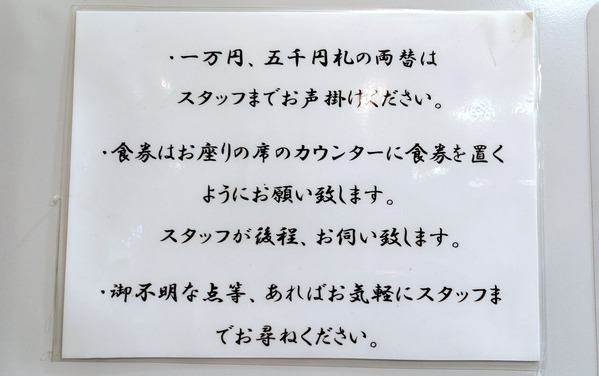 ・一万円、五千円札の両替は
スタッフまでお声掛けください。
・食券はお座りの席のカウンターに食券を置く
ようにお願い致します。
スタッフが後程、お伺い致します。
・御不明な点等、あればお気軽にスタッフま
でお尋ねください。